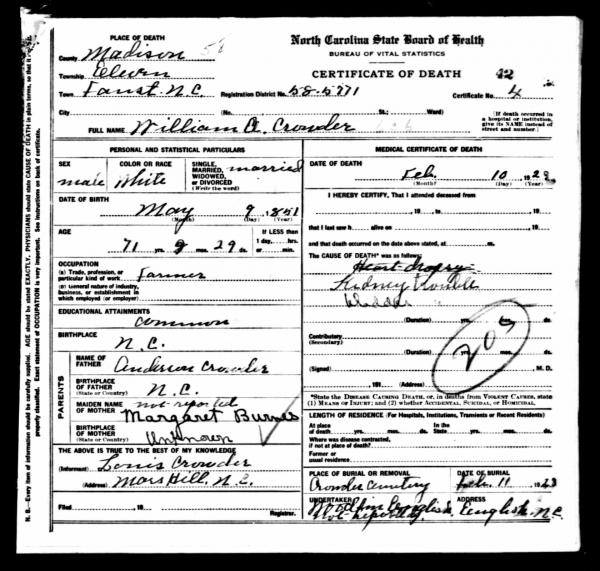 PLACE OF DEATH
County Madison
Township Eleven
Town Faust N.C.
North Carolina State Board of Health
BUREAU OF VITAL STATISTICS
CERTIFICATE OF DEATH
Registration District No. 58-5771 Certificate No. 4
City No. St.; Ward)
FULL NAME William A. Crowder
[If death occurred in a hospital or institution, give its NAME instead of street and number.]
PERSONAL AND STATISTICAL PARTICULARS
SEX male
COLOR OR RACE White
SINGLE, MARRIED, WIDOWED, OR DIVORCED (Write the word) married
DATE OF BIRTH May 9, 1851
(Month) (Day) (Year)
AGE 71 yrs. 9 mos. 29 ds.
If LESS than 1 day,....hrs. or....min.
OCCUPATION
(a) Trade, profession, or particular kind of work Farmer
(b) General nature of industry, business, or establishment in which employed (or employer)
EDUCATIONAL ATTAINMENTS common
BIRTHPLACE N.C.
PARENTS
NAME OF FATHER Anderson Crowder
BIRTHPLACE OF FATHER (State or Country) N.C.
MAIDEN NAME OF MOTHER not reported
Margaret Burnes
BIRTHPLACE OF MOTHER (State or Country) Unknown
THE ABOVE IS TRUE TO THE BEST OF MY KNOWLEDGE
(Informant) Louis Crowder
(Address) Mars Hill, N.C.
Filed , 19 Registrar.
MEDICAL CERTIFICATE OF DEATH
DATE OF DEATH Feb. 10, 192
(Month) (Day) (Year)
I HEREBY CERTIFY, That I attended deceased from
, 19 , to , 19
that I last saw h alive on , 19
and that death occurred on the date above stated, at m.
The CAUSE OF DEATH* was as follows:
Heart dropsy
Kidney trouble
bladder
(Duration) yrs. mos. ds.
Contributory (Secondary)
(Duration) yrs. mos. ds.
(Signed) M. D.
, 191 (Address)
*State the DISEASE CAUSING DEATH, or, in deaths from VIOLENT CAUSES, state (1) MEANS OF INJURY; and (2) whether ACCIDENTAL, SUICIDAL, or HOMICIDAL.
LENGTH OF RESIDENCE (For Hospitals, Institutions, Transients or Recent Residents)
At place of death yrs. mos. ds. In the State yrs. mos. ds.
Where was disease contracted, if not at place of death?
Former or usual residence
PLACE OF BURIAL OR REMOVAL Crowder Cemetery
DATE OF BURIAL Feb. 11, 1923
UNDERTAKER
not reported
ADDRESS English N.C.
N. B.—Every item of information should be carefully supplied. AGE should be stated EXACTLY. PHYSICIANS should state CAUSE OF DEATH in plain terms, so that it
properly classified. Exact statement of OCCUPATION is very important. See instructions on back of certificate.